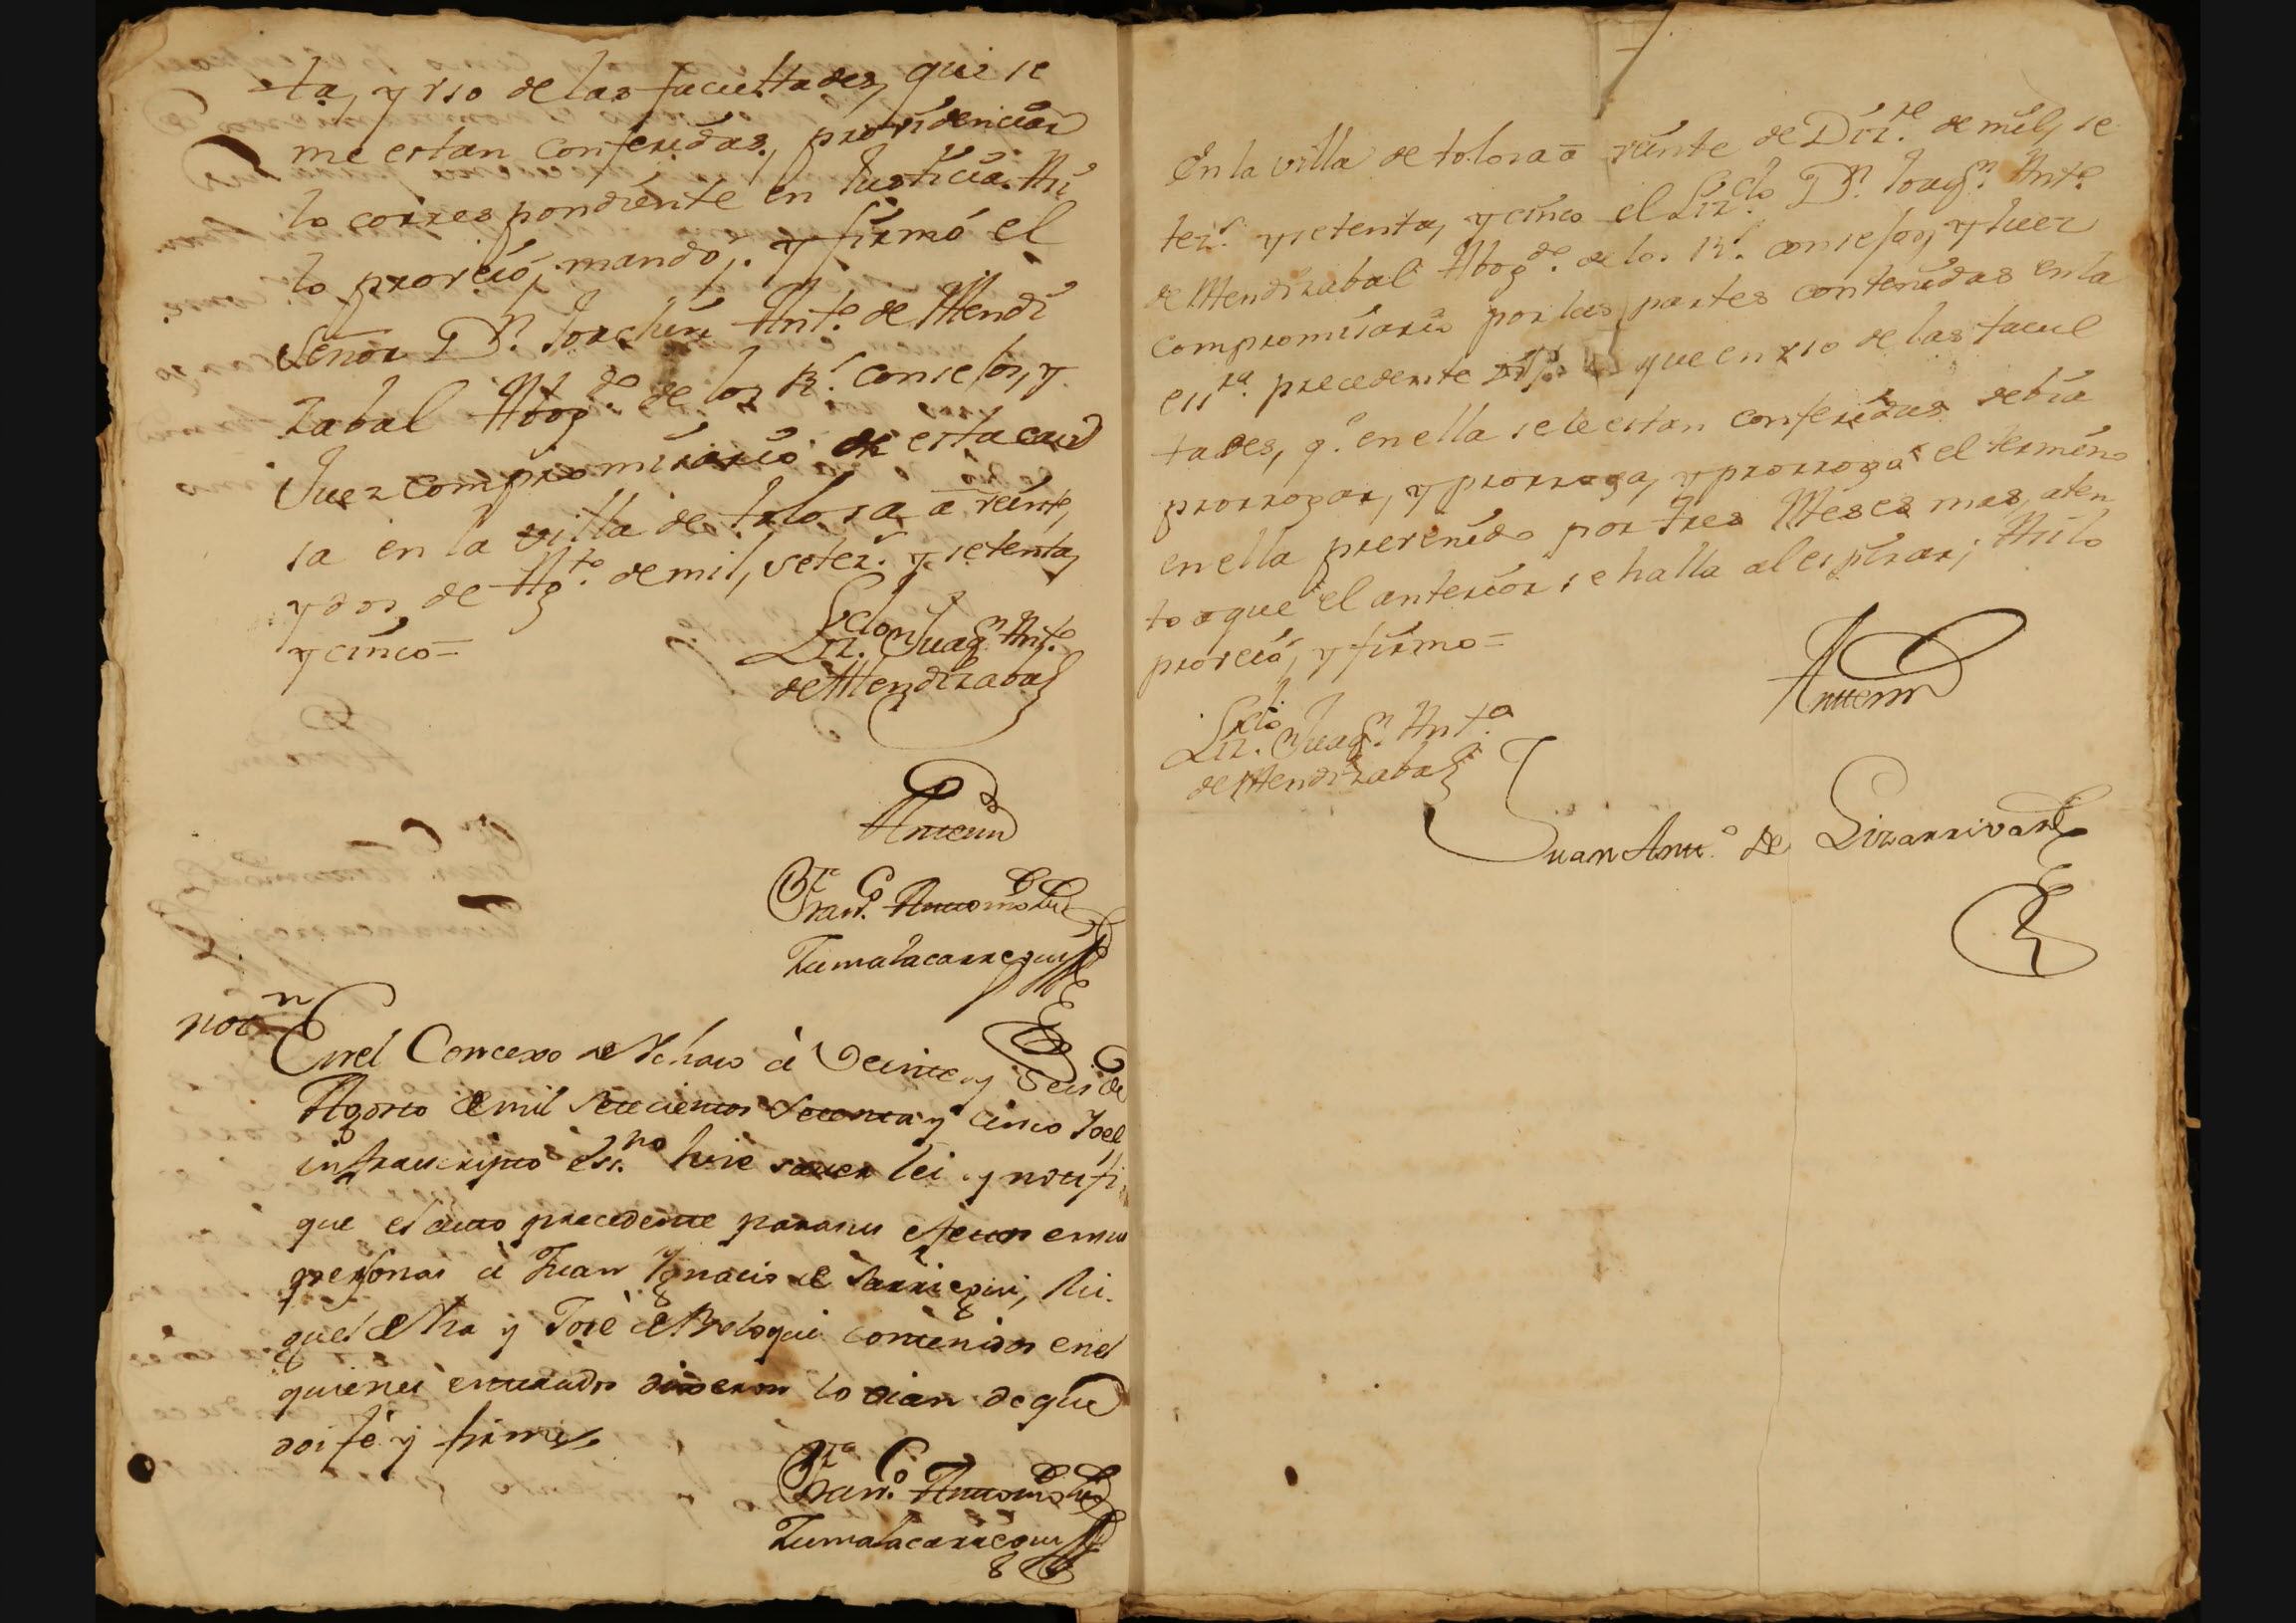 ta, y uso de las facultades, que se
me estan conferidas, providenciar
lo correspondiente en Justicia. Asi
lo proveió, mandó, y firmó el
Señor Dn. Joachin Anto. de Mendi
zabal Abogdo. de los Rs. consejos, y
Juez compromisario de esta cau
sa en la villa de tolosa a veinte,
y dos, de Agto. de mil, setezs. y setenta,
y cinco=
Lizdo. Dn. Juaqn. Anto.
de Mendizabal
Antemi
Franco. Antonio de
Zumalacarregui
notn
En el Concexo de Ichaso à Veinte y Seis de
Agosto de mil Setecientos Setenta y cinco Yo el
infrascripto essno. hice saver lei y notifi
que el auto precedente para sus efectos en sus
personas à Juan Ygnacio de Sarriegui, Mi
guel de Ara y José de Beloqui contenidos en el
quienes enterados dixeron lo oian de que
doi fé y firmé
Franco. Antonio de
Zumalacarregui
En la villa de tolosa a veinte de Dizre. de mil, se
tezs. y setenta, y cinco el Lizdo. Dn. Joaqn. Anto.
de Mendizabal Abogdo. de los Rs. consejos, y Juez
compromisario por las partes contenidas en la
essra. precedente Dijo que en uso de las facul
tades, q. en ella se le estan conferidas debia
prorrogar, y prorroga, y prorrogó el termino
en ella prevenido por tres Meses mas, aten
to a que el anterior se halla al espirar; Asi lo
proveió, y firmo=
Antemi
Lizdo. Dn. Juaqn. Anto.
de Mendizabal
Juan Anto. de Lizarrivar